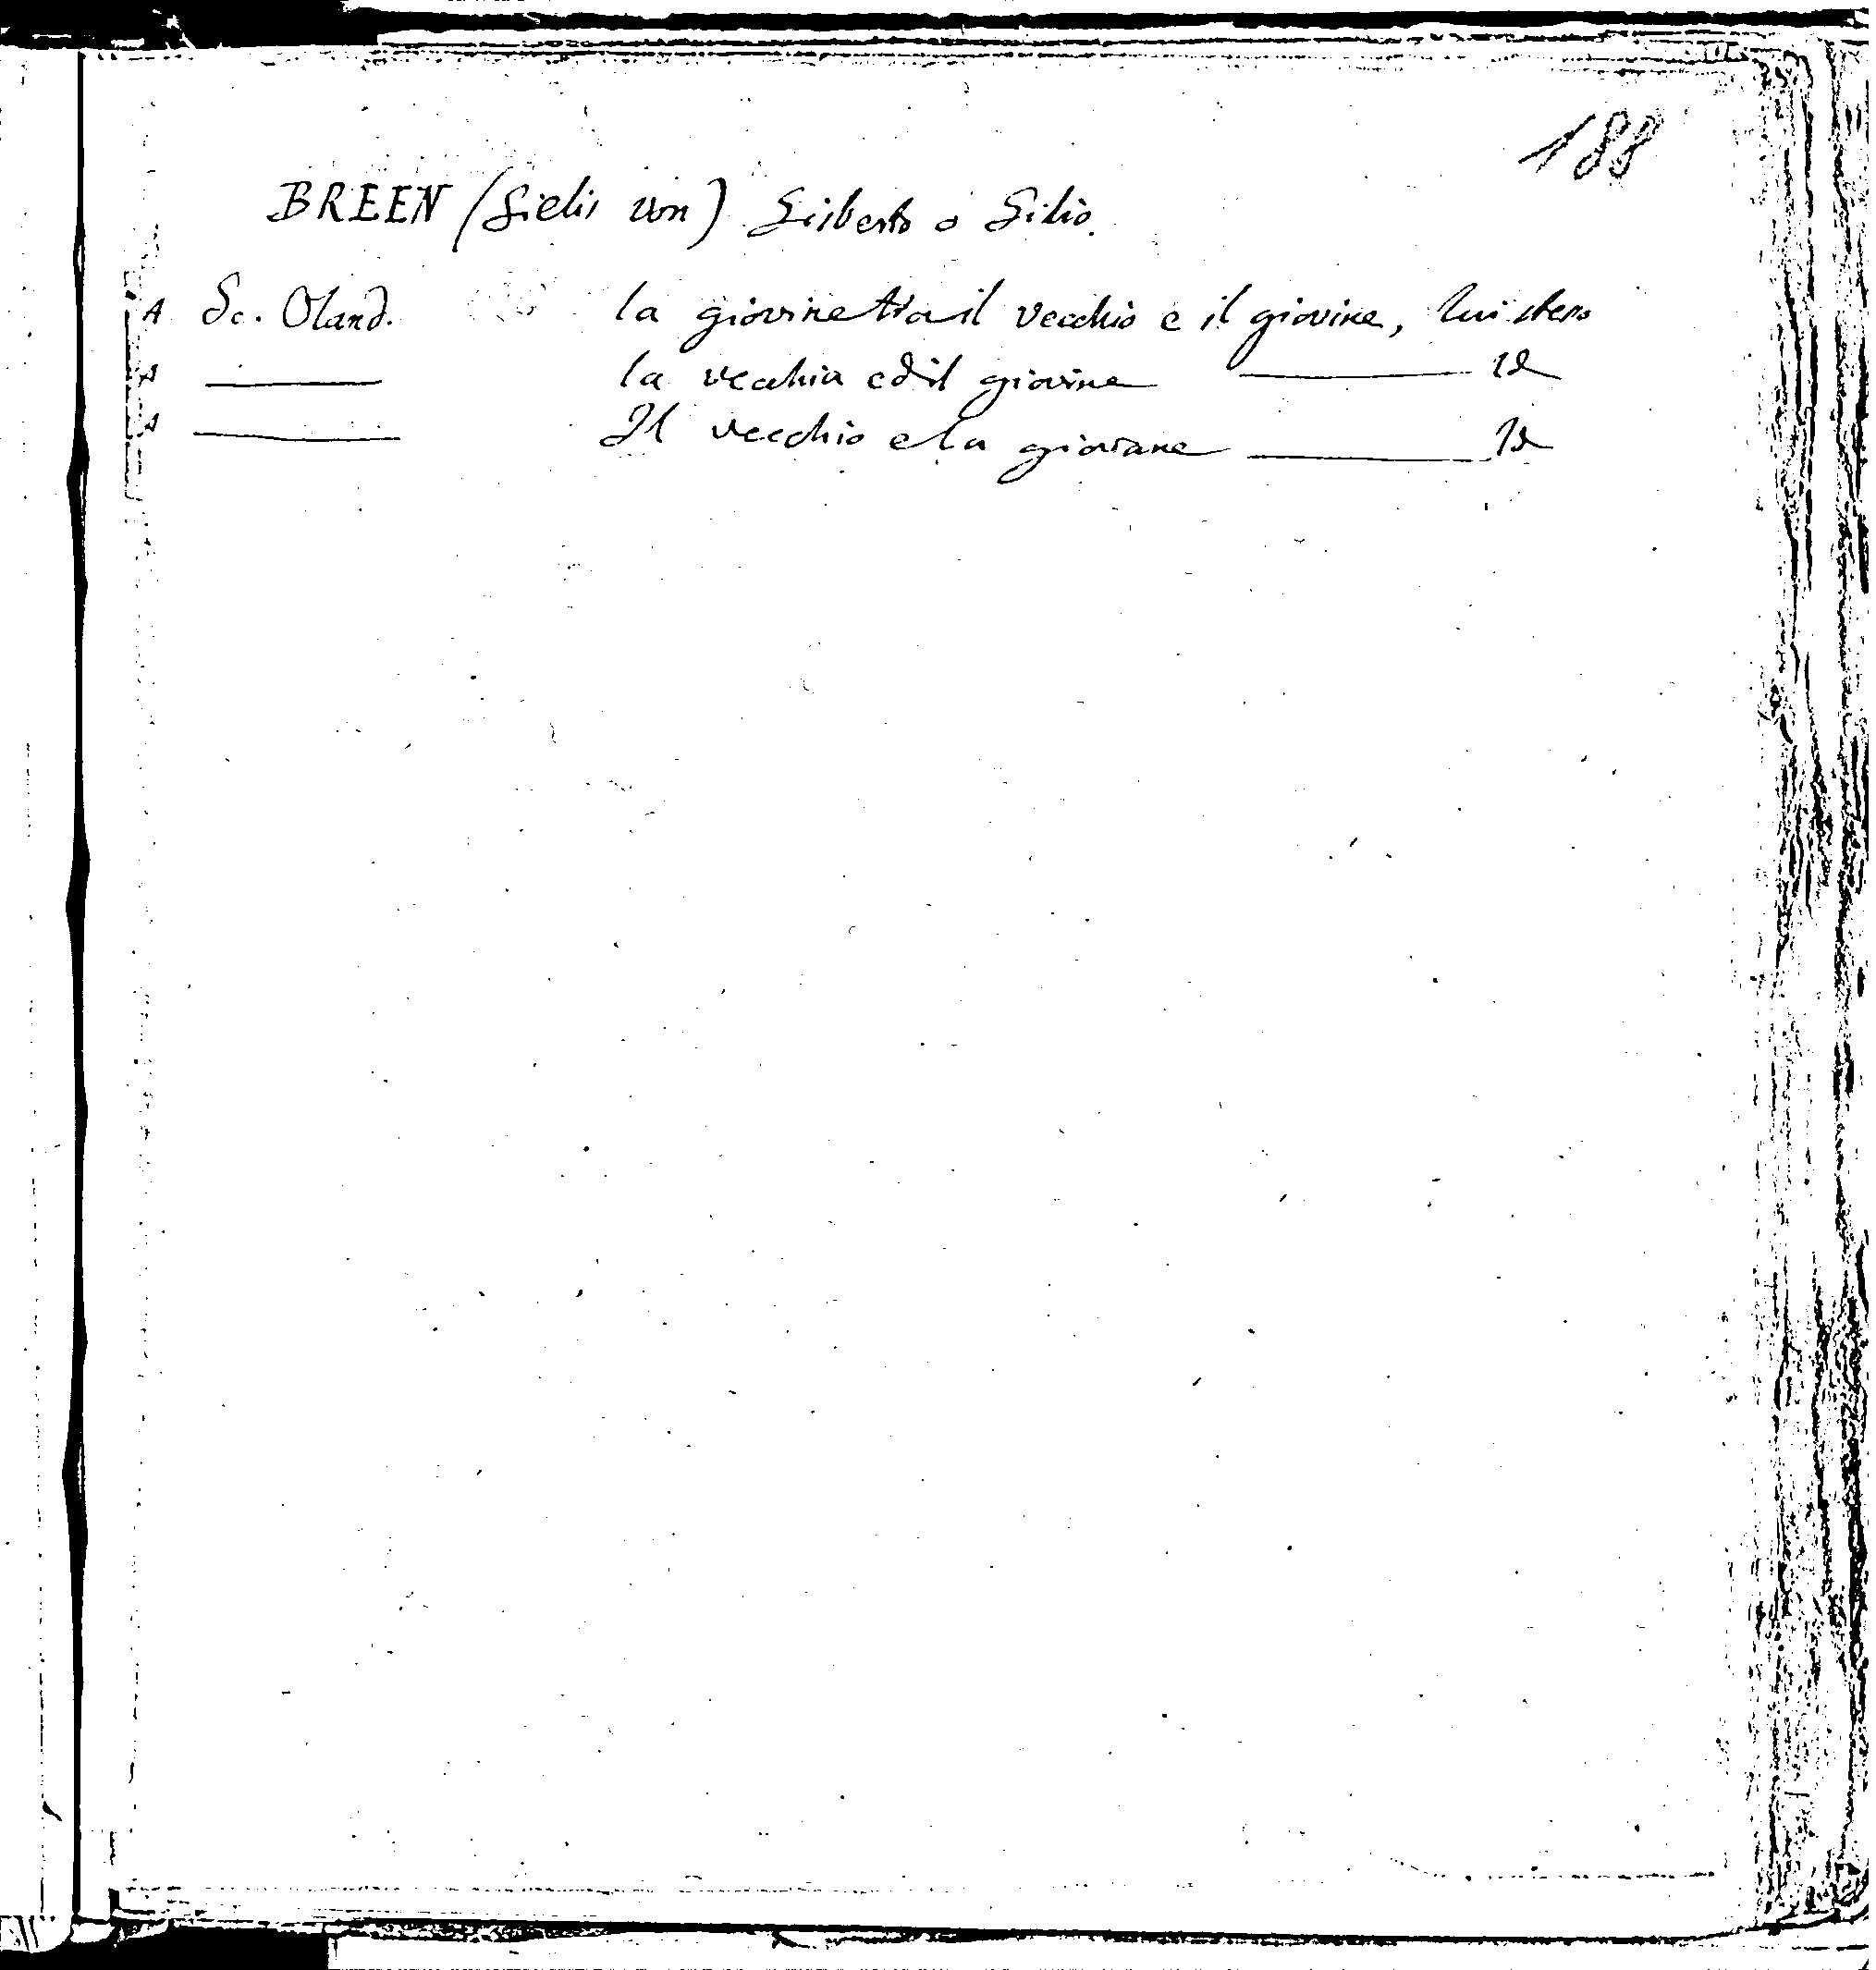 188
BREEN (Gielis von) Gisberto o Gilio.
A Sc. Oland. la giovine tra il vecchio e il giovine, lui stesso
A ——— la vecchia ed il giovine ——— Id
A ——— Il vecchio e la giovane ——— Id